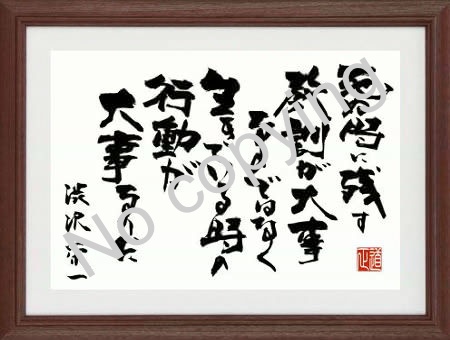 死ぬ時に残す
教訓が大事
なのではなく
生きている時の
行動が
大事なのだ
渋沢栄一
正道
No copying